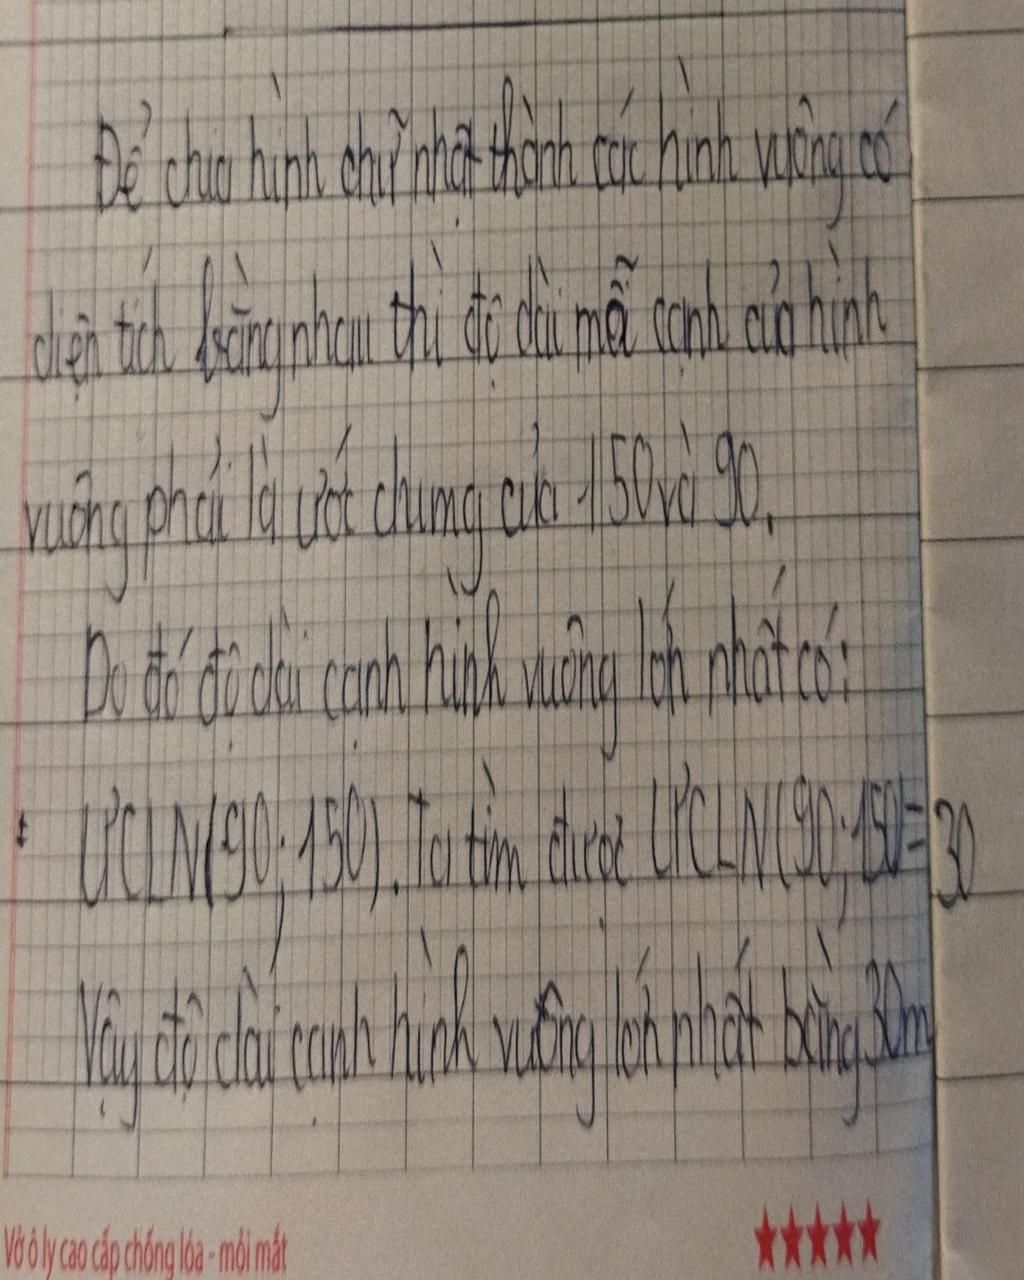 Để chia hình chữ nhật thành các hình vuông có
diện tích bằng nhau thì độ dài mỗi cạnh của hình
vuông phải là ước chung của 150 và 90.
Do đó độ dài cạnh hình vuông lớn nhất có:
ƯCLN(90; 150). Ta tìm được ƯCLN(90; 150)=30
Vậy độ dài cạnh hình vuông lớn nhất bằng 30m
Vở ô ly cao cấp chống lóa - mỏi mắt